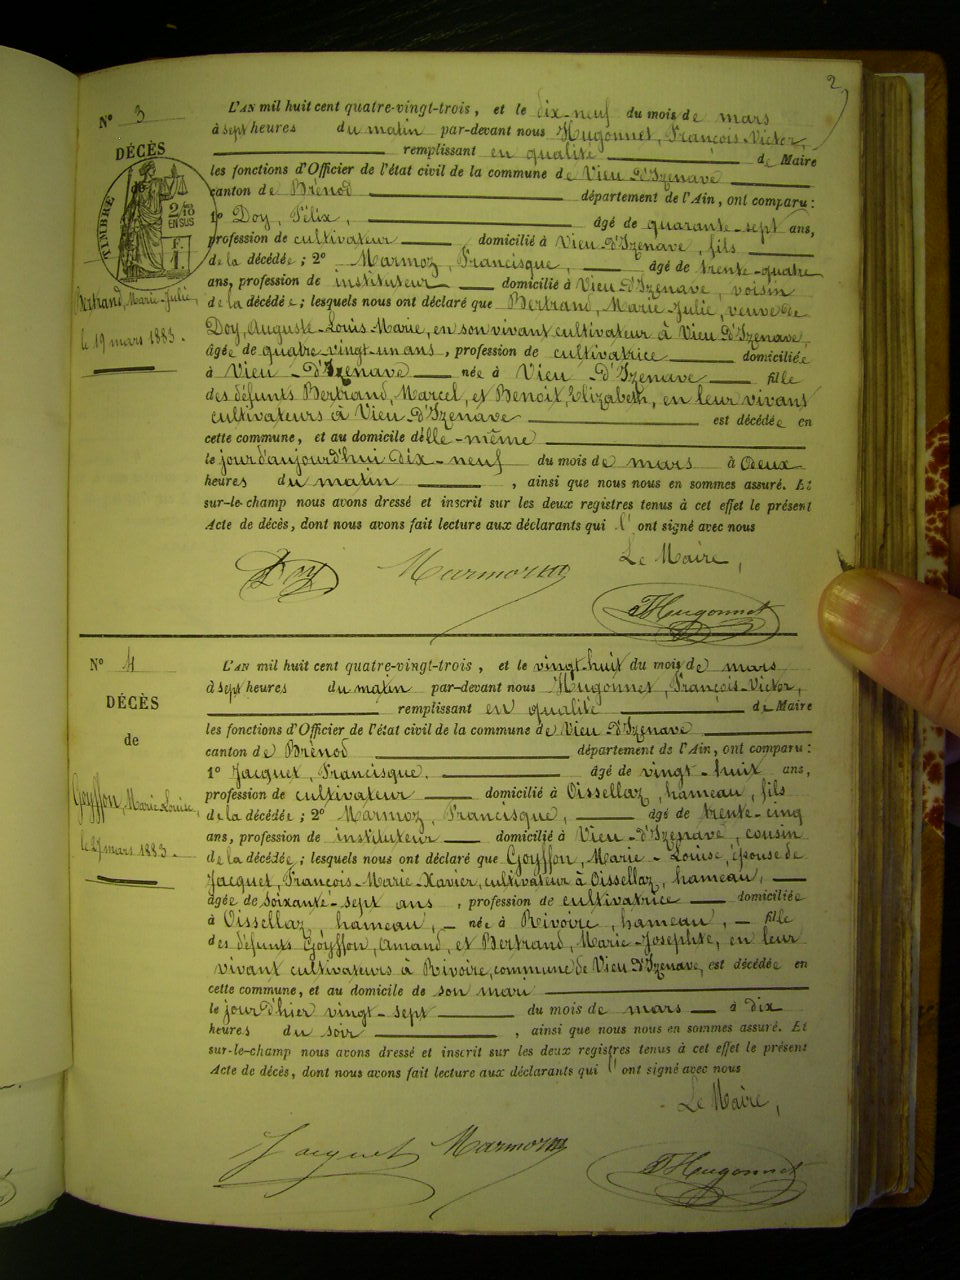 2
N° 3
DÉCÈS
TIMBRE
2/10
EN SUS
F.
1
Bertrand, Marie-Julie,
le 19 mars 1883.
L'AN mil huit cent quatre-vingt-trois, et le dix-neuf du mois de mars
à sept heures du matin par-devant nous Hugonnet, François-Victor,
remplissant en qualité de Maire
les fonctions d'Officier de l'état civil de la commune de Vieu-d'Izenave
canton de Brénod département de l'Ain, ont comparu :
1° Doy, Félix, âgé de quarante-sept ans,
profession de cultivateur domicilié à Vieu-d'Izenave, fils
de la décédée ; 2° Marmoz, Francisque, âgé de trente-quatre
ans, profession de instituteur domicilié à Vieu-d'Izenave, voisin
de la décédée ; lesquels nous ont déclaré que Bertrand, Marie-Julie, veuve de
Doy, Auguste-Louis-Marie, en son vivant cultivateur à Vieu-d'Izenave,
âgée de quatre-vingt-un ans, profession de cultivatrice domiciliée
à Vieu-d'Izenave née à Vieu-d'Izenave fille
des défunts Bertrand, Marcel, et Benoit, Elizabeth, en leur vivant
cultivateurs à Vieu-d'Izenave est décédée en
cette commune, et au domicile d'elle-même
le jour d'aujourd'hui dix-neuf du mois de mars à deux
heures du matin, ainsi que nous nous en sommes assuré. Et
sur-le-champ nous avons dressé et inscrit sur les deux registres tenus à cet effet le présent
Acte de décès, dont nous avons fait lecture aux déclarants qui l'ont signé avec nous
Le Maire,
Doy Marmoz
Hugonnet
N° 4
DÉCÈS
de
Goyffon, Marie-Louise,
le 27 mars 1883.
L'AN mil huit cent quatre-vingt-trois, et le vingt-huit du mois de mars
à sept heures du matin par-devant nous Hugonnet, François-Victor,
remplissant en qualité de Maire
les fonctions d'Officier de l'état civil de la commune de Vieu-d'Izenave
canton de Brénod département de l'Ain, ont comparu :
1° Jacquet, Francisque, âgé de vingt-huit ans,
profession de cultivateur domicilié à Oissellaz, hameau, fils
de la décédée ; 2° Marmoz, Francisque, âgé de trente-cinq
ans, profession de instituteur domicilié à Vieu-d'Izenave, cousin
de la décédée ; lesquels nous ont déclaré que Goyffon, Marie-Louise, épouse de
Jacquet, François-Marie-Xavier, cultivateur à Oissellaz, hameau,
âgée de soixante-sept ans, profession de cultivatrice domiciliée
à Oissellaz, hameau, née à Rivoire, hameau, fille
des défunts Goyffon, Amand, et Bertrand, Marie-Josephte, en leur
vivant cultivateurs à Rivoire, commune de Vieu-d'Izenave, est décédée en
cette commune, et au domicile de son mari
le jour d'hier vingt-sept du mois de mars à dix
heures du soir, ainsi que nous nous en sommes assuré. Et
sur-le-champ nous avons dressé et inscrit sur les deux registres tenus à cet effet le présent
Acte de décès, dont nous avons fait lecture aux déclarants qui l'ont signé avec nous
Le Maire,
Jacquet Marmoz
Hugonnet